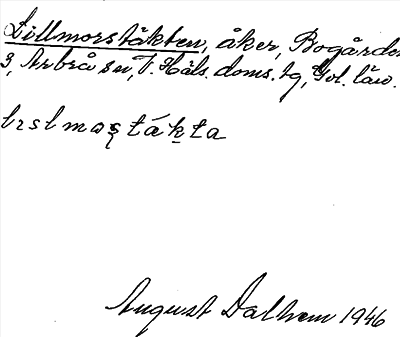 Lillmorstäkten, åker, Bogården
3, Arbrå sn, V. Häls. doms. tg, Gävl. län.
August Dalhem 1946